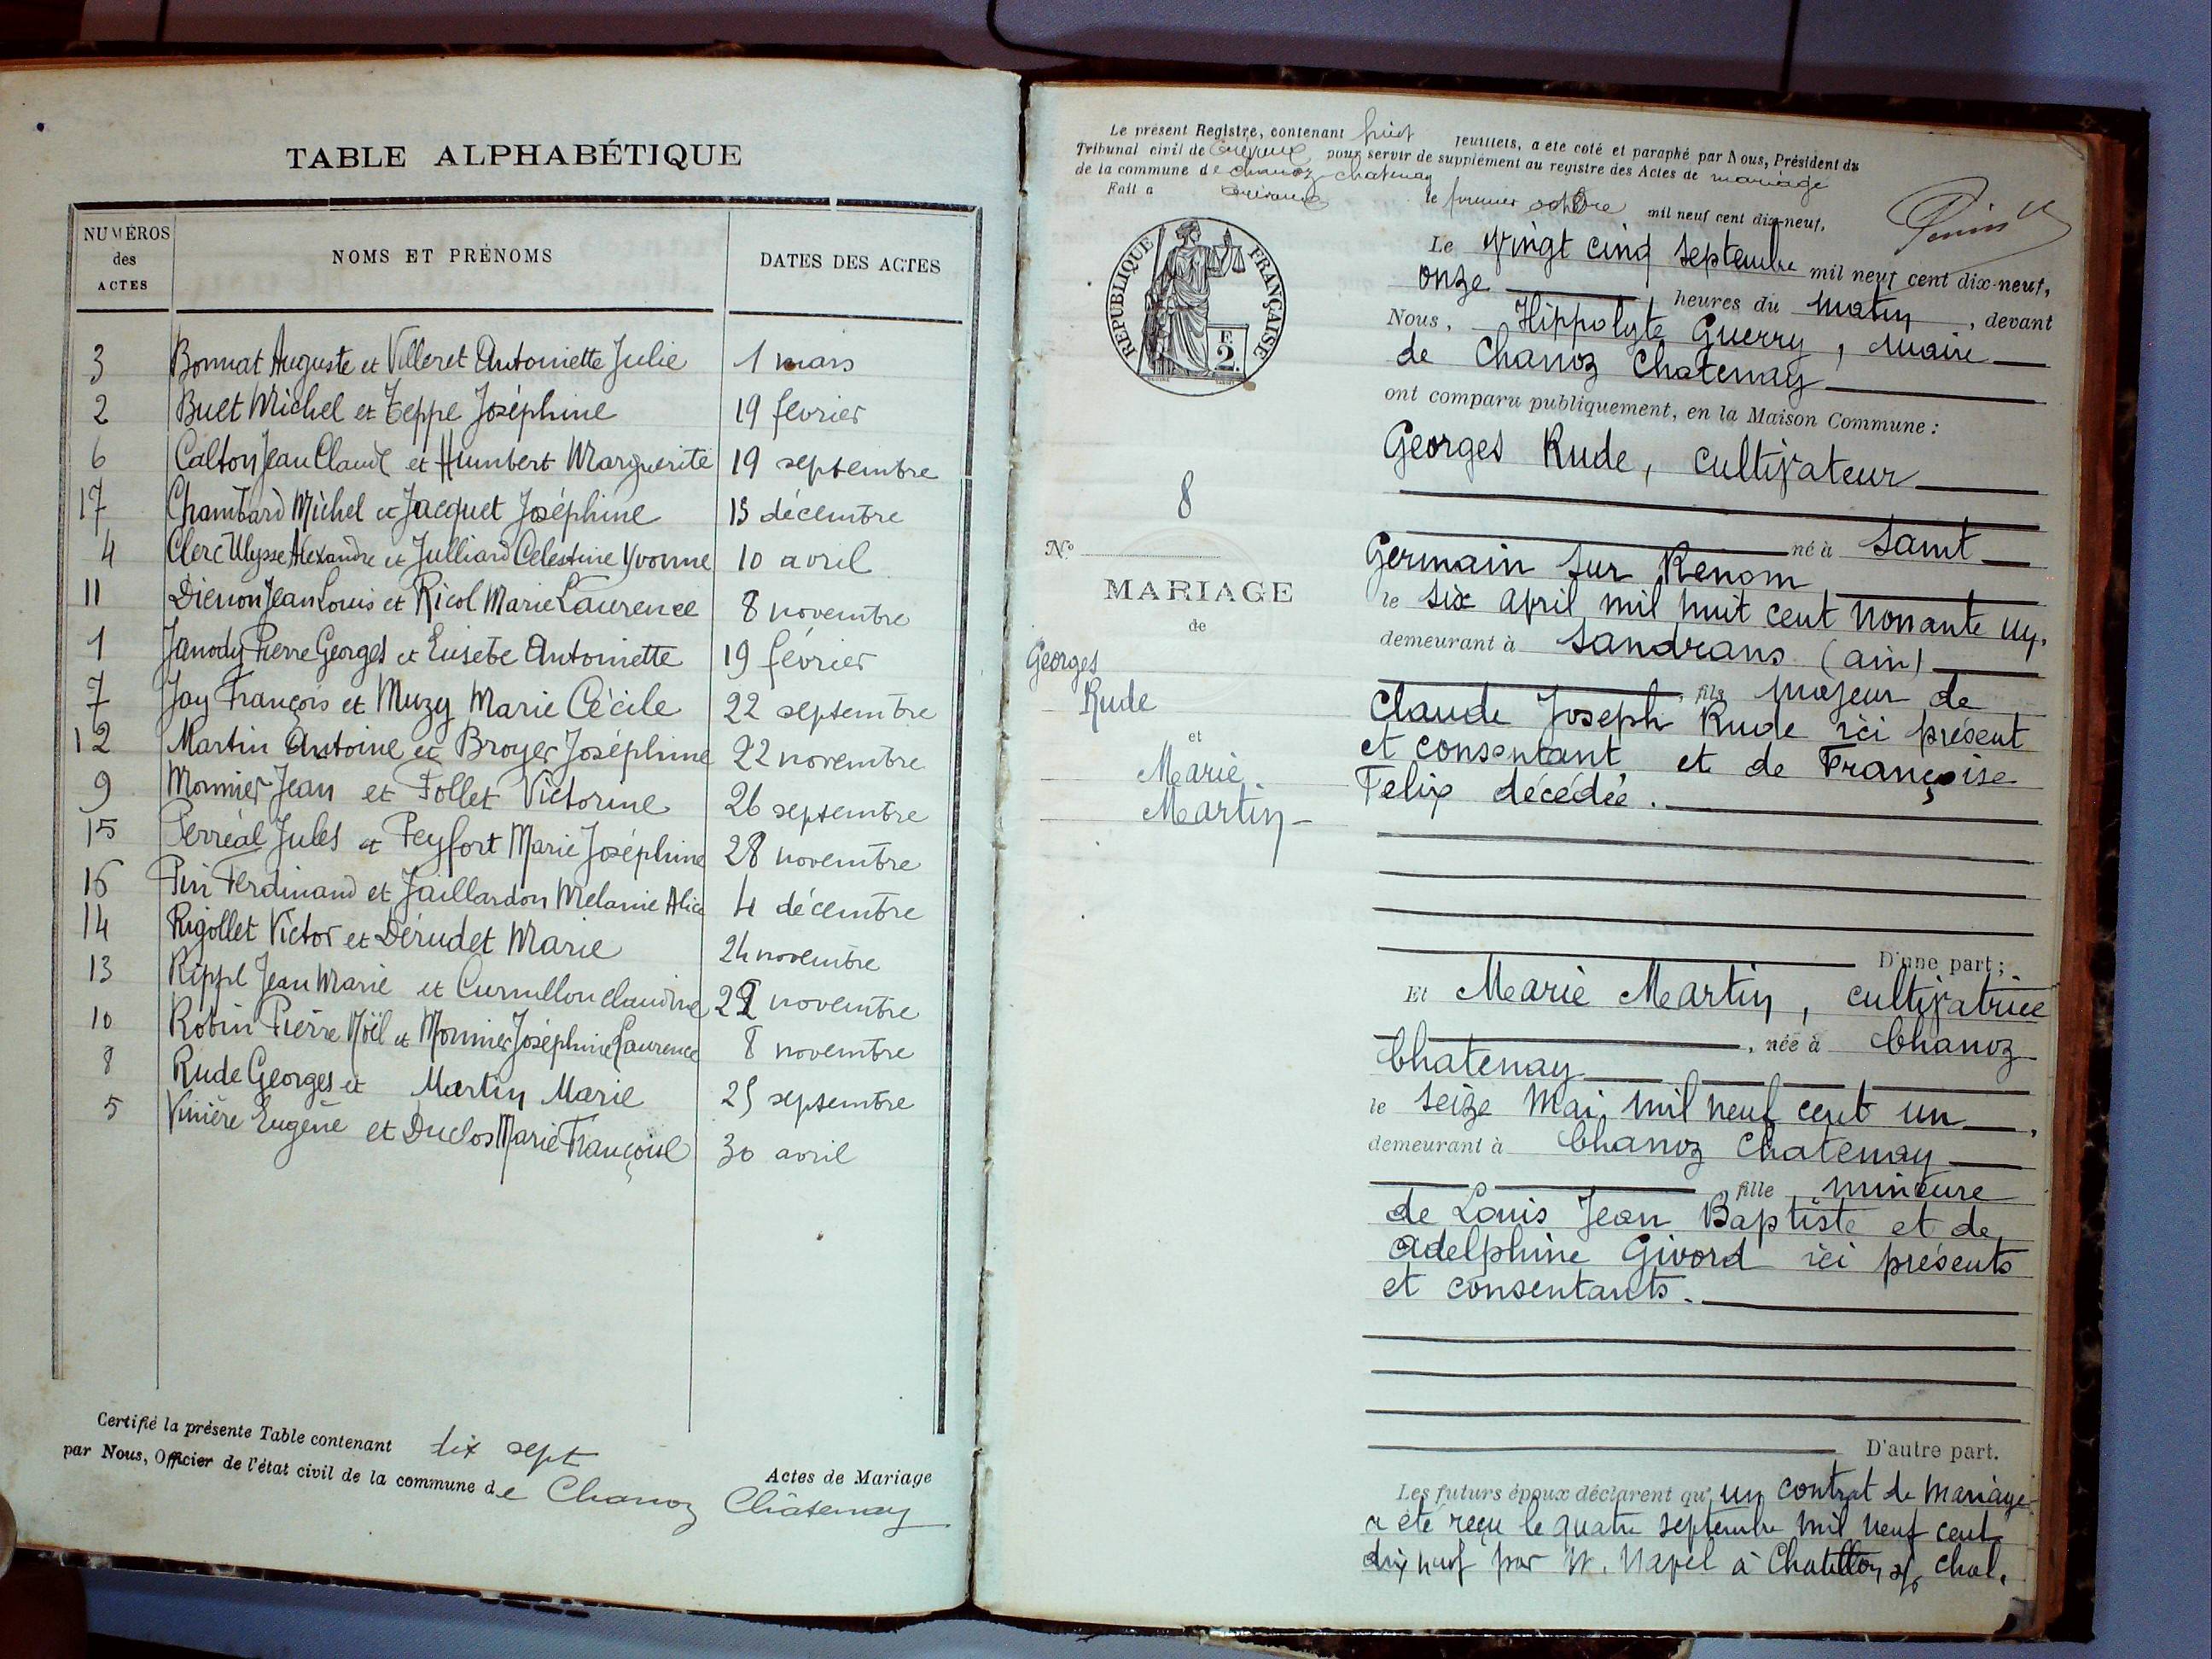 TABLE ALPHABÉTIQUE
NUMÉROS des ACTES
NOMS ET PRÉNOMS
DATES DES ACTES
3 Bonnat Auguste et Villeret Antoinette Julie 1 mars
2 Buet Michel et Teppe Joséphine 19 février
6 Calton Jean Claude et Humbert Marguerite 19 septembre
17 Chambard Michel et Jacquet Joséphine 15 décembre
4 Clerc Ulysse Alexandre et Julliard Célestine Yvonne 10 avril
11 Dienon Jean Louis et Ricol Marie Laurence 8 novembre
1 Janody Pierre Georges et Eusebe Antoinette 19 février
7 Jay François et Muzy Marie Cécile 22 septembre
12 Martin Antoine et Broyer Joséphine 22 novembre
9 Monnier Jean et Follet Victorine 26 septembre
15 Perréal Jules et Peyfort Marie Joséphine 28 novembre
16 Pin Ferdinand et Jaillardon Melanie Alice 4 décembre
14 Rigollet Victor et Dérudet Marie 24 novembre
13 Rippe Jean Marie et Curnillon Claudine novembre
10 Robin Pierre Noël et Monnier Joséphine Laurence 8 novembre
8 Rude Georges et Martin Marie 25 septembre
5 Vinière Eugène et Duclos Marie Françoise 30 avril
Certifié la présente Table contenant dix sept Actes de Mariage
par Nous, Officier de l'état civil de la commune de Chanoz Châtenay
Le présent Registre, contenant huit feuillets, a été coté et paraphé par Nous, Président du
Tribunal civil de Trévoux pour servir de supplément au registre des Actes de mariage
de la commune de Chanoz-Chatenay
Fait à Trévoux le premier octobre mil neuf cent dix-neuf,
RÉPUBLIQUE FRANÇAISE
E
2.
Le vingt cinq septembre mil neuf cent dix-neuf,
onze heures du matin, devant
Nous, Hippolyte Guerry, maire
de Chanoz Chatenay
ont comparu publiquement, en la Maison Commune :
Georges Rude, cultivateur
né à Saint
Germain sur Renom
le six april mil huit cent nonante un.
demeurant à Sandrans (ain)
, fils majeur de
Claude Joseph Rude ici présent
et consentant et de Françoise
Felix décédée.
D'une part ;
8
N°
MARIAGE
de
Georges
Rude
et
Marie
Martin
Et Marie Martin, cultivatrice
, née à Chanoz
Chatenay
le seize mai, mil neuf cent un,
demeurant à Chanoz Chatenay
fille mineure
de Louis Jean Baptiste et de
Adelphine Givord ici présents
et consentants.
D'autre part.
Les futurs époux déclarent qu'un contrat de mariage
a été reçu le quatre septembre mil neuf cent
dix neuf par à Chatillon s/ Chal.